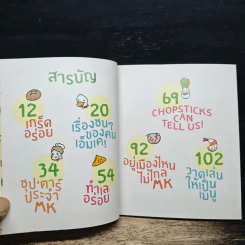 สารบัญ
12
เกร็ด
อร่อย
20
เรื่องชุ่นๆ
ของคน
เอ็มเค!
34
ซุป'ตาร์
ประจำ
MK
54
ทำเล
อร่อย
69
CHOPSTICKS
CAN
TELL US!
92
อยู่เมืองไหน
ไม่ไกล
MK
102
วาดเล่น
ให้เป็น
เมนู